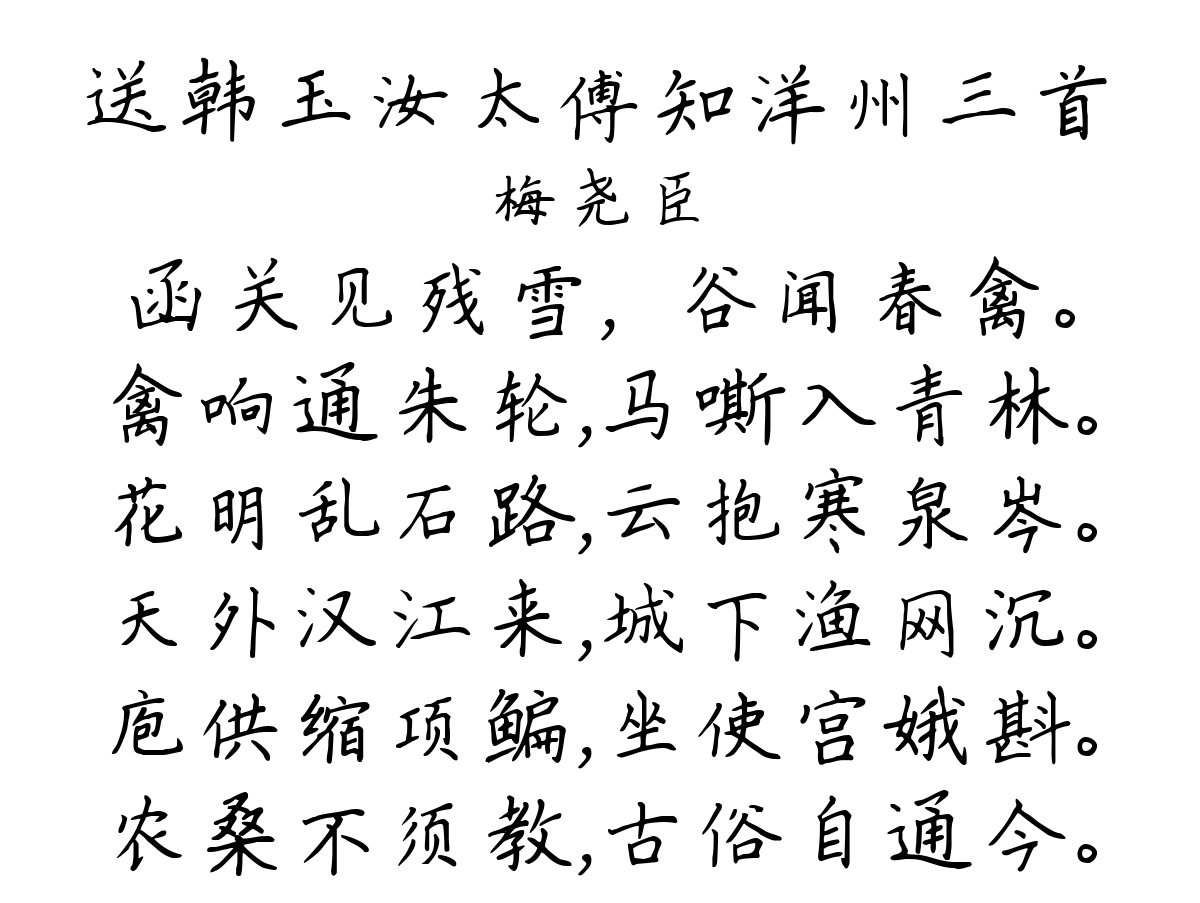 送韩玉汝太傅知洋州三首
梅尧臣
函关见残雪，谷闻春禽。
禽响通朱轮,马嘶入青林。
花明乱石路,云抱寒泉岑。
天外汉江来,城下渔网沉。
庖供缩项鳊,坐使宫娥斟。
农桑不须教,古俗自通今。